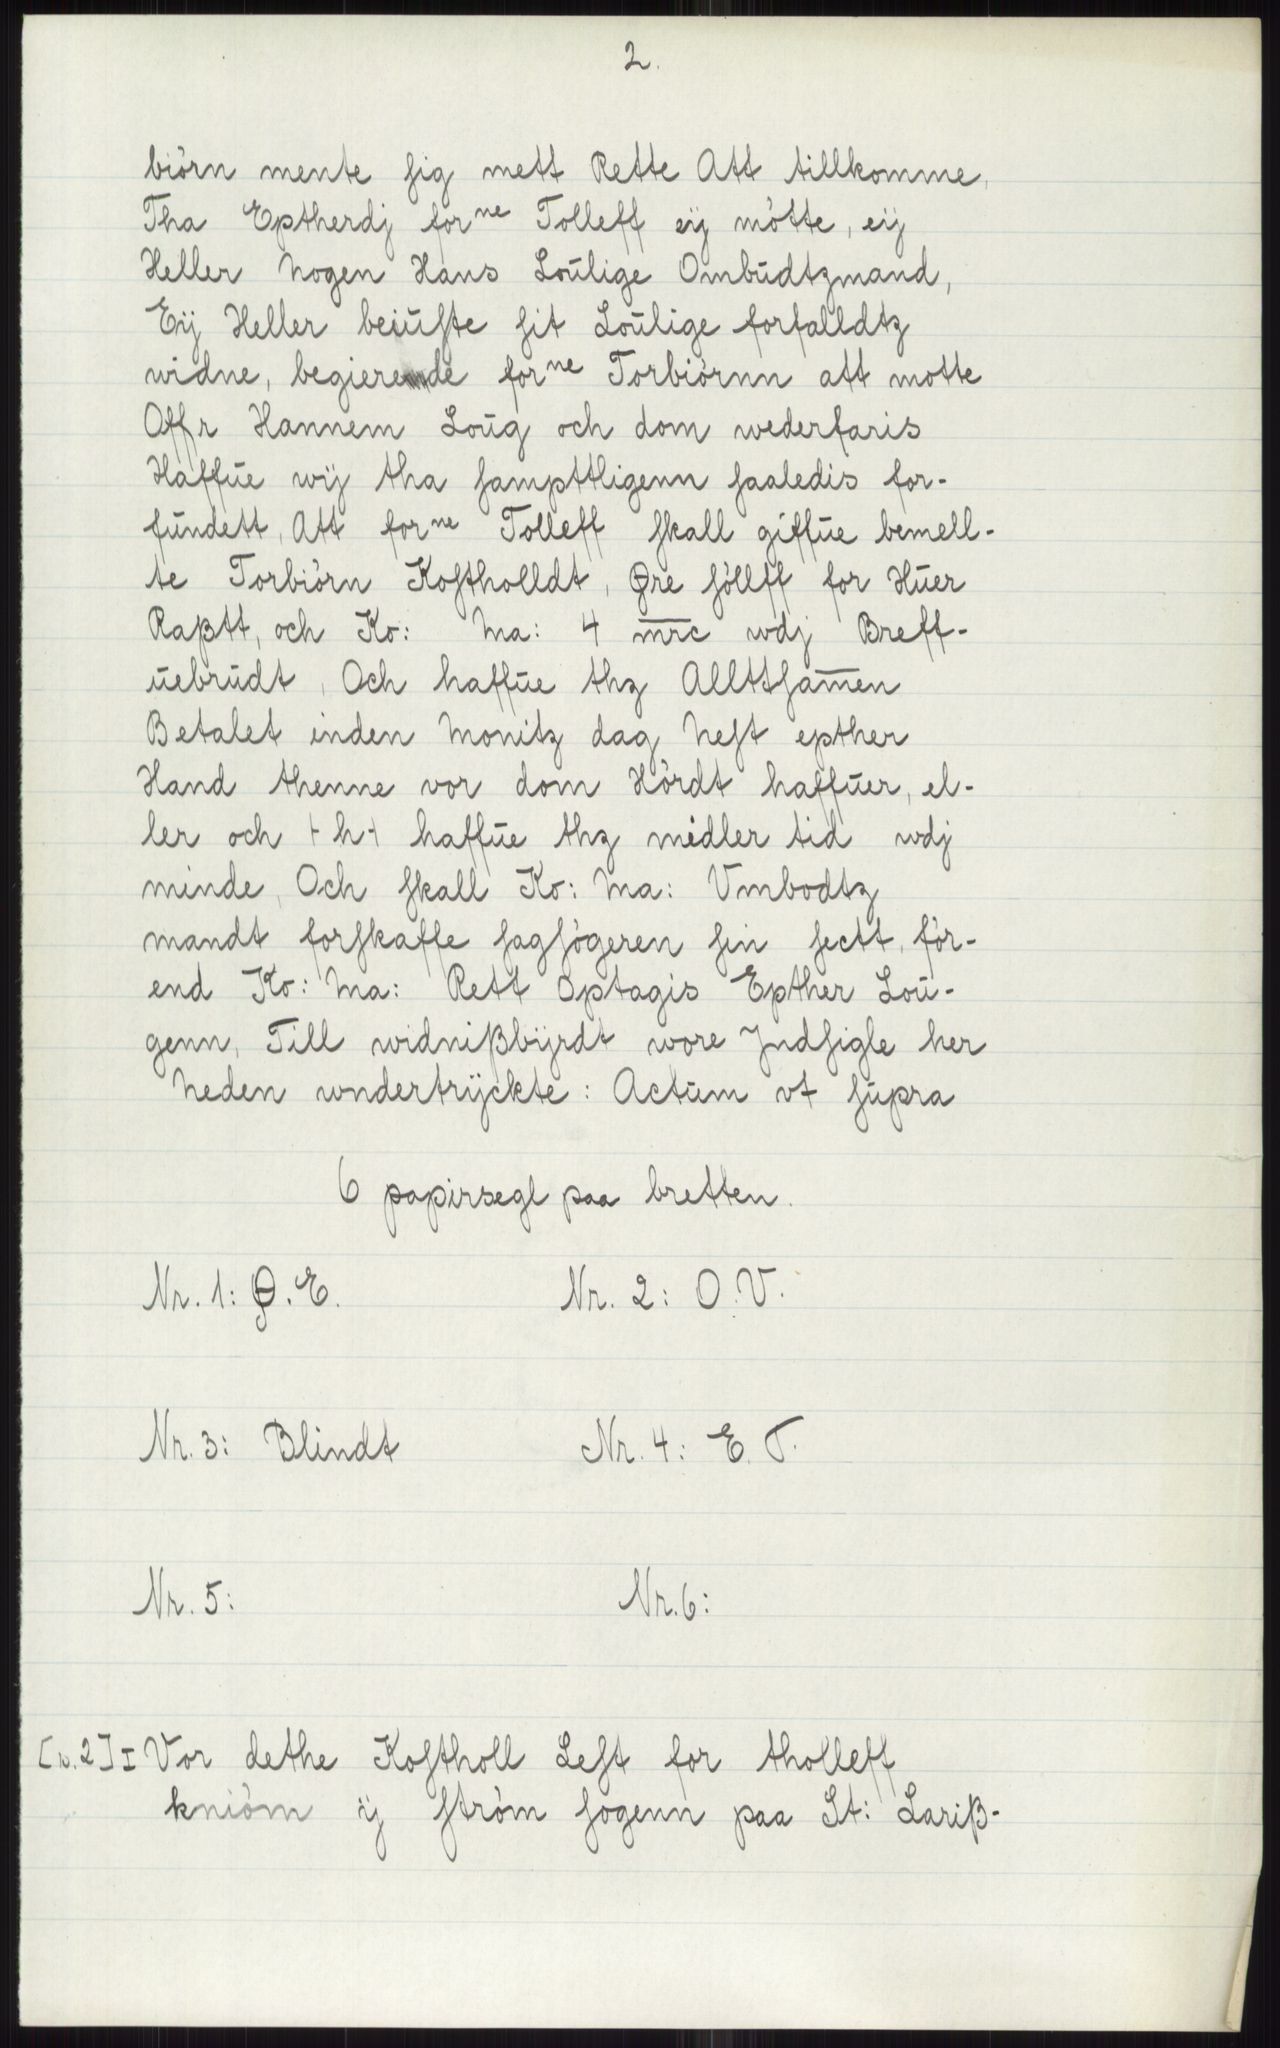 2.
biörn mente sig mett Rette Att tillkomme,
Tha Eptherdj forne Tolleff eÿ mötte, eij
Heller Nogen Hans Loŭlige Ombŭdtzmand,
Eÿ Heller beiŭste sit Loŭlige forfalldtz
widne, begierende forne Torbiörnn att motte
Offr Hannem Loŭg och dom wederfaris
Haffŭe wÿ tha sampttligenn saaledis for-
fŭndett, Att forne Tolleff skall giffŭe bemell-
te Torbiörn Kostholldt, Øre söllff for Hŭer
Raßtt, och Ko: Ma: 4 mrc wdj Breff-
ŭebrŭdt, Och haffŭe thz Allttsam̄en
Betalet inden Monitz dag Nest epther
Hand thenne vor dom Hördt haffŭer, el-
ler och +h+ haffŭe thz midler tid wdj
minde, Och skall Ko: Ma: Vmbodtz
mandt forskaffe sagsögeren sin sectt, för-
end Ko: Ma: Rett Optagis Epther Loŭ-
genn, Till widnißbÿrdt wore Jndsigle her
Neden wndertrÿckte: Actŭm vt sŭpra
6 papirsegl paa bretten.
Nr. 1: Ø. E. Nr. 2: O. V.
Nr. 3: Blindt Nr. 4: E. T.
Nr. 5: Nr. 6:
[n. 2] I Vor dethe Kostholl Lest for tholleff
kniöm ÿ ström sogenn paa St: Lariß-